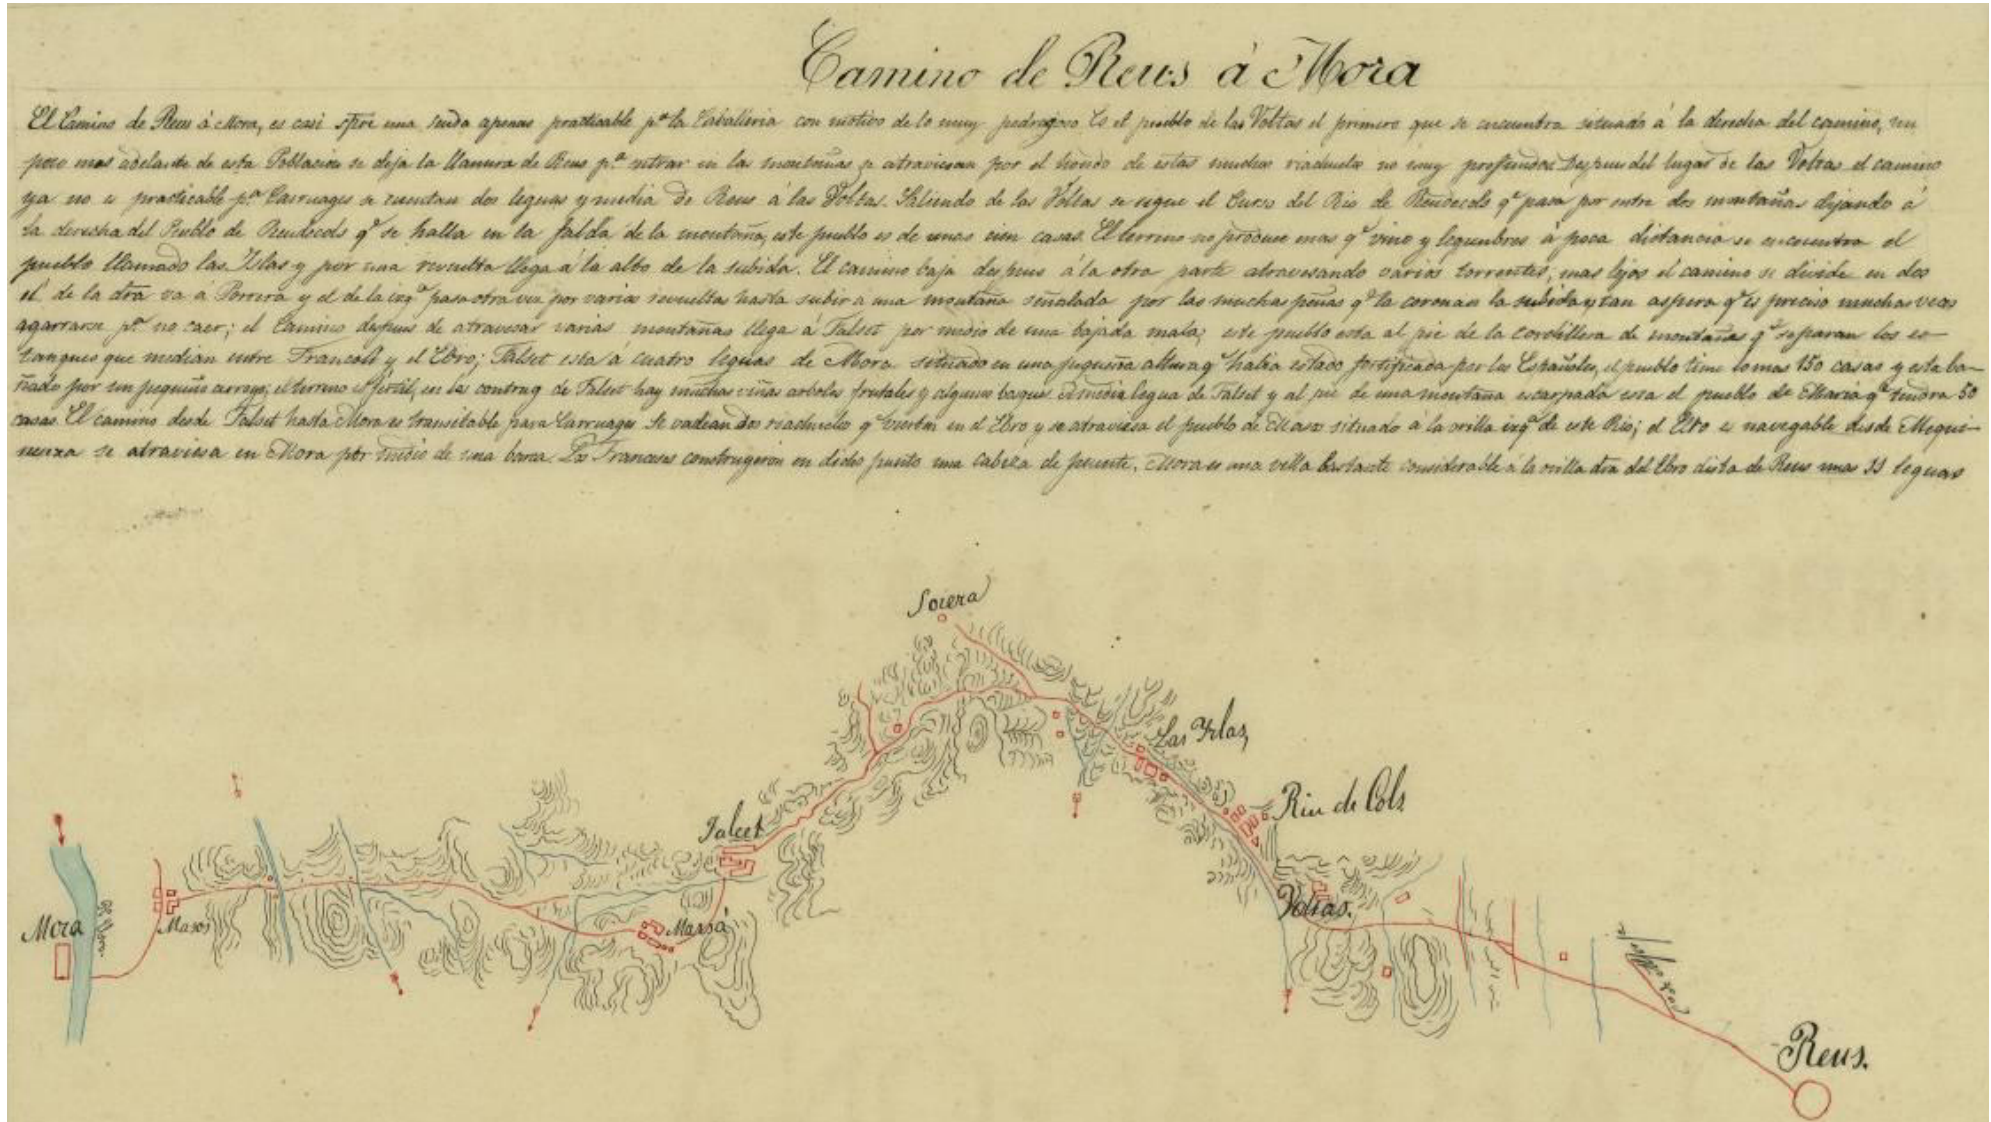 Camino de Reus á Mora
El Camino de Reus á Mora, es casi spre una senda apenas practicable pª la Caballeria con motivo de lo muy pedragoso Es el pueblo de las Voltas el primero que se encuentra situado á la derecha del camino, un
poco mas adelante de esta Poblacion se deja la llanura de Reus pª entrar en las montañas se atraviesan por el hondo de estas muchos riachuelos no muy profundos. Despues del lugar de las Voltas el camino
ya no es practicable pª Carruages se cuentan dos leguas y media de Reus á las Voltas. Saliendo de las Voltas se sigue el Curso del Rio de Reudecols qᵉ pasa por entre dos montañas dejando á
la derecha del Pueblo de Reudecols qᵉ se halla en la falda de la montaña, este pueblo es de unas cien casas. El terreno no produce mas qᵉ vino y legumbres á poca distancia se encuentra el
pueblo llamado las Islas y por una revuelta llega á lo alto de la subida. El camino baja despues á la otra parte atravesando varios torrentes, mas lejos el camino se divide en dos
el de la dra va á Porrera y el de la izqª pasa otra vez por varias revueltas hasta subir a una montaña señalada por las muchas peñas qᵉ la coronan la subida es tan aspera qᵉ es preciso muchas veces
agarrarse pª no caer; el Camino despues de atravesar varias montañas llega á Falset por medio de una bajada mala; este pueblo esta al pie de la cordillera de montañas qᵉ separan los es-
tanques que median entre Francolí y el Ebro; Falset esta á cuatro leguas de Mora situado en una pequeña altura qᵉ habia estado fortificada por los Españoles, el pueblo tiene lo mas 150 casas y esta ba-
ñado por un pequeño arroyo; el terreno es fertil, en las contrug de Falset hay muchas viñas arboles frutales y algunos bosques. A media legua de Falset y al pie de una montaña escarpada esta el pueblo de Mariá qᵉ tendra 50
casas. El camino desde Falset hasta Mora es transitable para Carruages Se vadean dos riachuelos qᵉ vierten en el Ebro y se atraviesa el pueblo de Masos situado á la orilla izqª de este Rio; el Ebro es navegable desde Mequi-
nenza se atraviesa en Mora por medio de una barca. Los Franceses construyeron en dicho punto una cabeza de puente. Mora es una villa bastante considerable á la orilla dra del Ebro dista de Reus unas 11 leguas
Sorera
Las Yslas,
Riu de Cols
Falcet
Voltas.
Marsá
Masos
Mora
Reus.